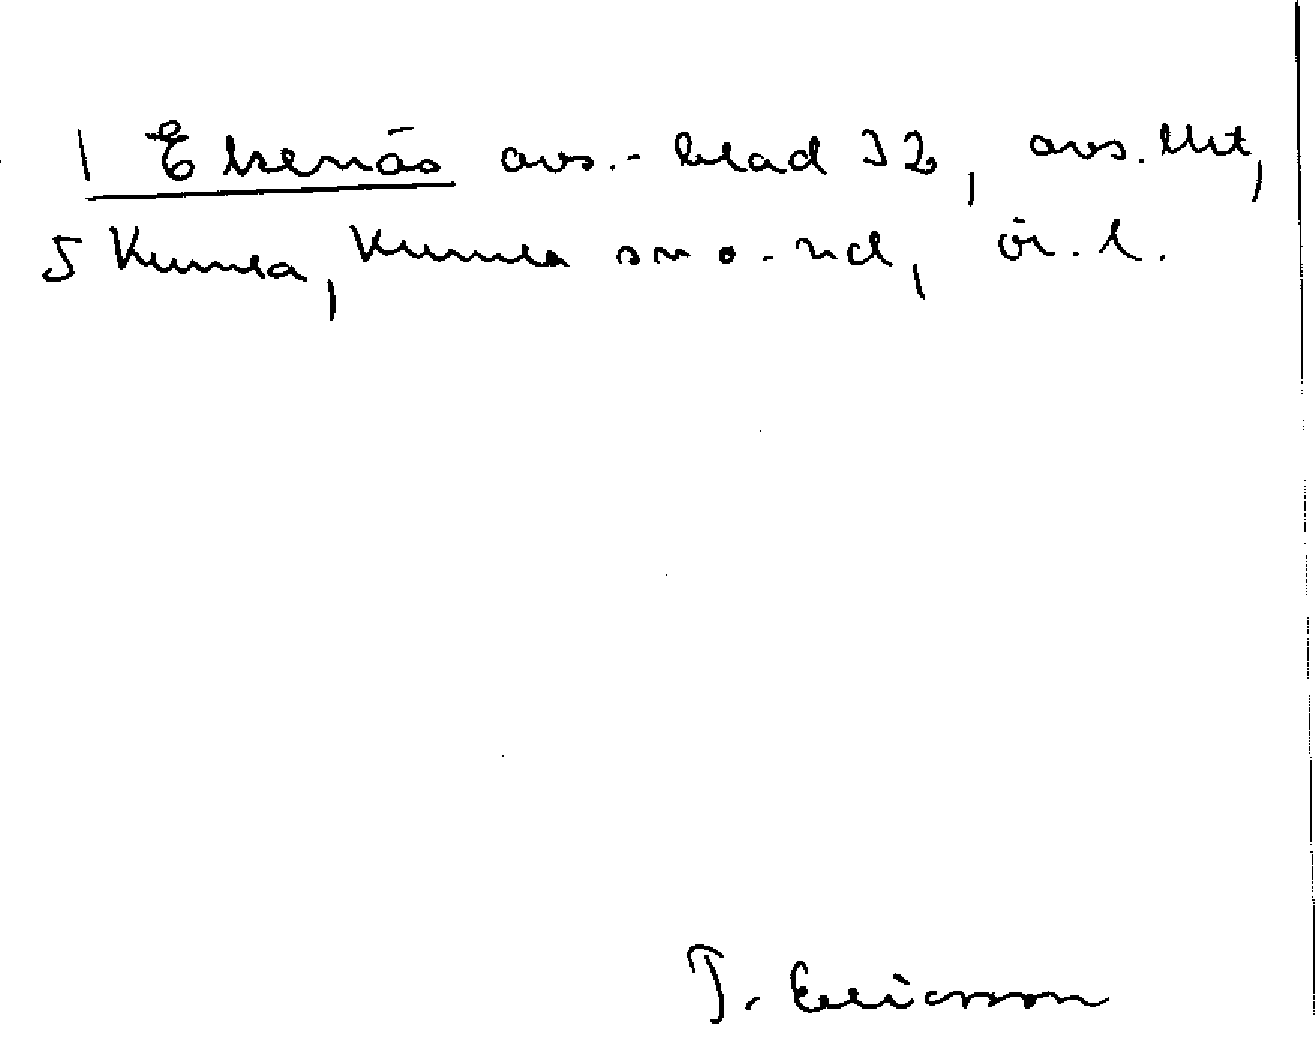 1 Ekenäs avs.-blad 32, avs. lht,
5 Kumla, Kumla sn o. hd, ör. l.
T. Ericsson